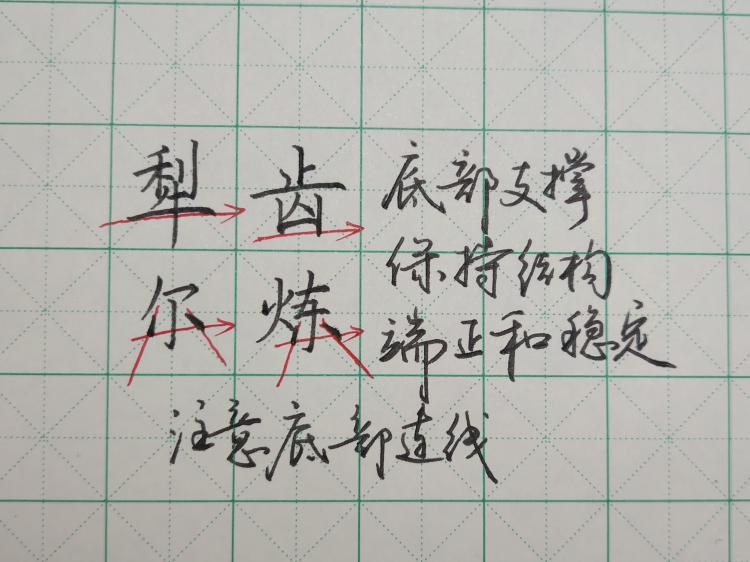 犁 齿 底部支撑
保持结构
尔 炼 端正和稳定
注意底部连线